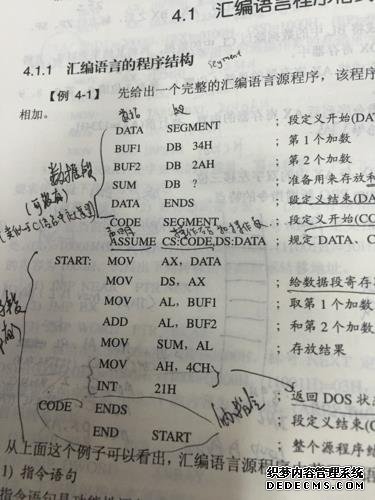 4.1 汇编语言程序格式
4.1.1 汇编语言的程序结构 segment
【例 4-1】 先给出一个完整的汇编语言源程序，该程序
相加。
数据 段
DATA SEGMENT ；段定义开始(DA
BUF1 DB 34H ；第 1 个加数
BUF2 DB 2AH ；第 2 个加数
数据段
SUM DB ? ；准备用来存放和
(可没有)
DATA ENDS ；段定义结束(DA
CODE SEGMENT ；段定义开始(CO
ASSUME CS:CODE,DS:DATA ；规定 DATA、C
START: MOV AX，DATA
MOV DS，AX ；给数据段寄存
MOV AL，BUF1 ；取第 1 个加数
ADD AL，BUF2 ；和第 2 个加数
MOV SUM，AL ；存放结果
MOV AH，4CH
INT 21H ；返回 DOS 状
CODE ENDS ；段定义结束(C
END START ；整个源程序结
从上面这个例子可以看出，汇编语言源程序
1) 指令语句
织梦内容管理系统
DEDECMS.COM